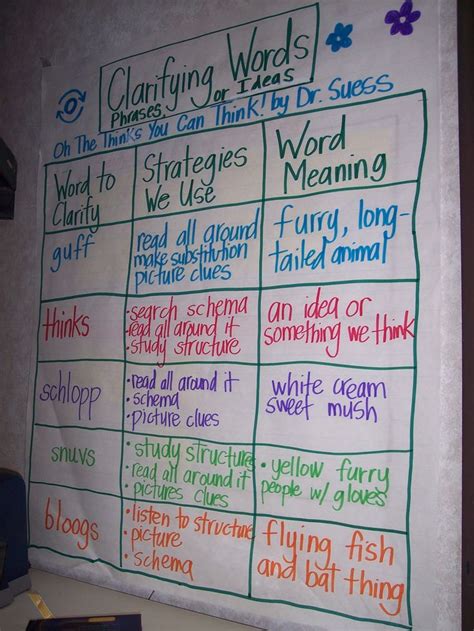 Clarifying Words
Phrases, or Ideas
Oh The Thinks You Can Think! by Dr. Suess
Word to
Clarify
Strategies
We Use
Word
Meaning
guff
read all around
make substitution
picture clues
furry, long-
tailed animal
thinks
• search schema
• read all around it
• study structure
an idea or
something we think
schlopp
• read all around it
• schema
• picture clues
white cream
sweet mush
snuvs
• study structure
• read all around it
• pictures clues
• yellow furry
people w/ gloves
bloogs
• listen to structure
• picture
• schema
flying fish
and bat thing